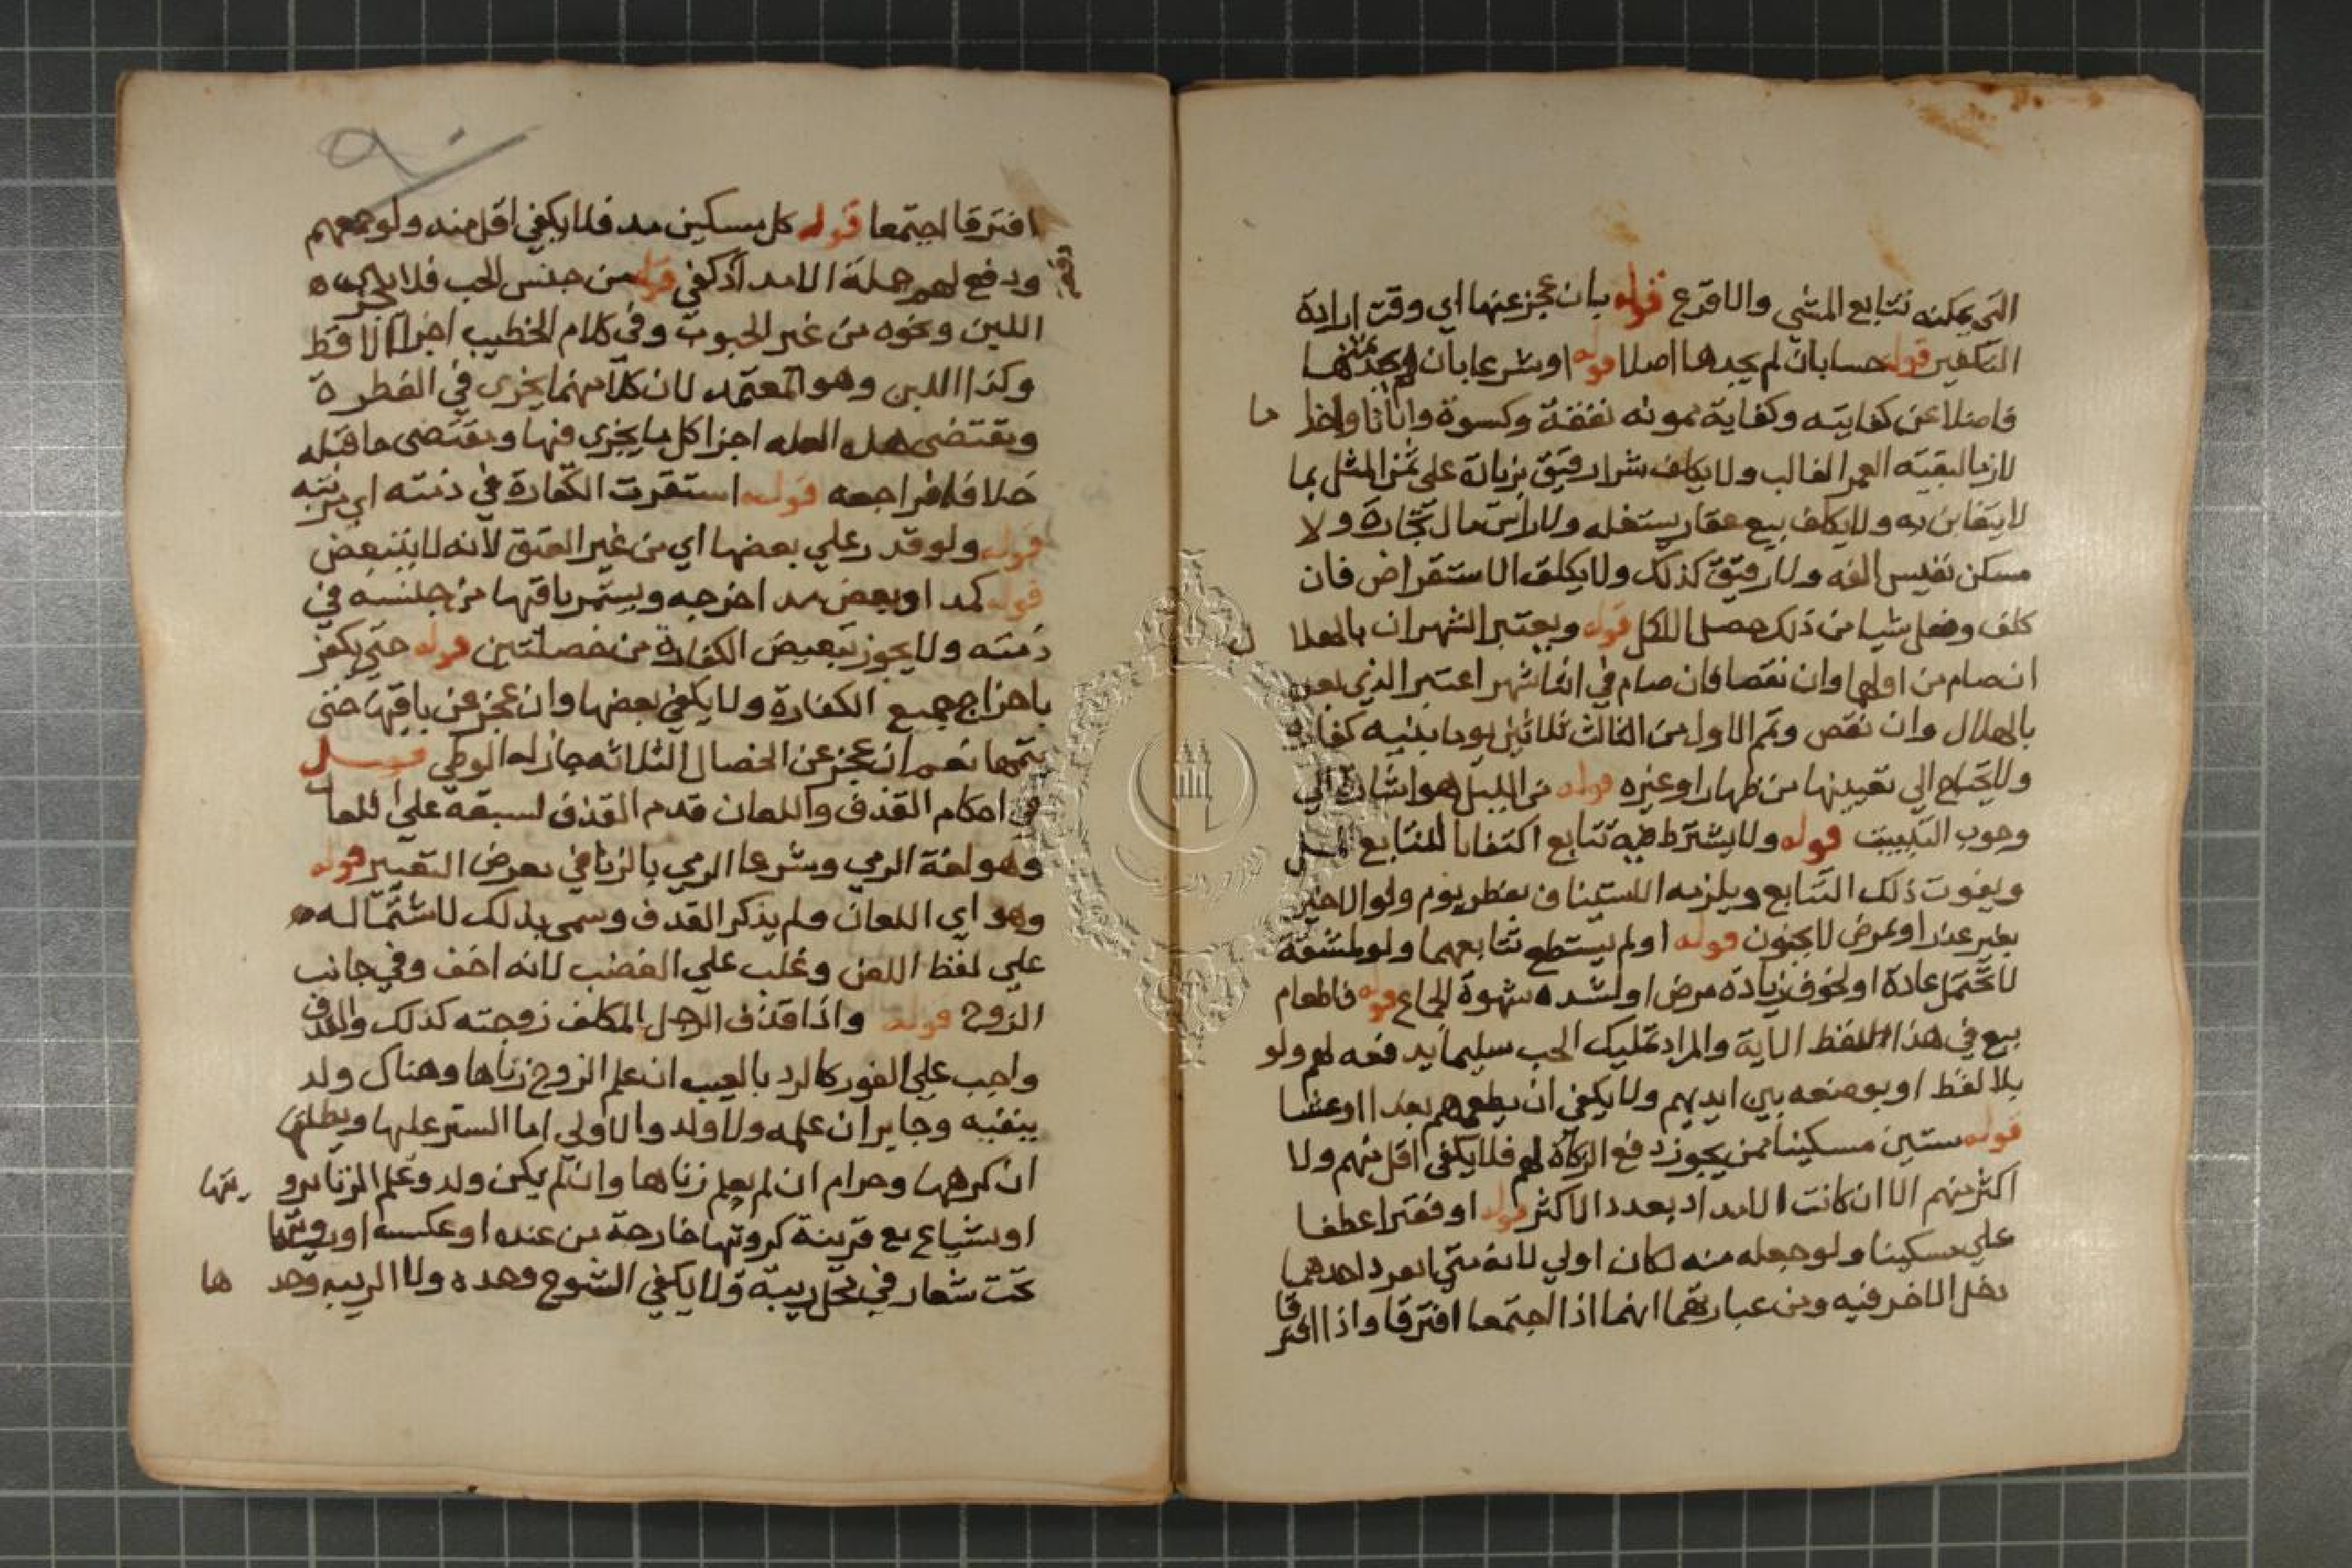 التي يمكنه تتابع المشي والاقرع قوله بان عجز عنها اي وقت ارادة
التكفير قوله حسا بان لم يجدها اصلا قوله او شرعا بان لم يجد ثمنها
فاضلا عن كفايته وكفاية ممونه نفقة وكسوة واثاثا واخدا ما
لازما لبقيته العمر الغالب ولا يكلف شرا رقيق بزيادة علي ثمن المثل بما
لا يتغابن به ولا يكلف بيع عقار يستغله ولا راس مال تجارة ولا
مسكن نفيس الفه ولا رقيق كذلك ولا يكلف الاستقراض فان
كلف وفعل شيا من ذلك حصل الاكل قوله ويعتبر الشهران بالهلا ل
ان صام من اولها وان نقصا فان صام في اثنا شهر اعتبر الذي بعده
بالهلال وان نقص وتم الاول من الثالث ثلاثين يوما بنيه كفارة
ولا يحتاج الي تعيينها من ظهار او غيره قوله من الليل هو اشارة الي
وجوب التبييت قوله ولا يشترط نية تتابع اكتفا با لتتابع
ويفوت ذلك التتابع ويلزمه الاستيناف بفطر يوم ولو الاخير
بغير عذر او بمرض لا بجنون قوله او لم يستطع تتابعهما ولو لمشقة
لا تحتمل عادة او لخوف زيادة مرض او لشده شهوة الجماع قوله فاطعام
بيع في هذا اللفظ الاية والمراد تمليك الحب سليما يدفعه لهم ولو
بلا لفظ او بوضعه بين ايديهم ولا يكفي ان يطعمهم بغدا او عشا
قوله ستين مسكينا ممن يجوز دفع الزكاة لهم فلا يكفي اقل منهم ولا
اكثر منهم الا ان كانت الامداد بعدد الاكثر قوله او فقيرا عطفا
علي مسكينا ولو جعله منه لكان اولي لانه متي انفرد احدهما
دخل الاخر فيه ومن عباراتهما انهما اذا اجتمعا افترقا واذا افترقا
افترقا اجتمعا قوله كل مسكين مد فلا يكفي اقل منه ولو جمعهم
ودفع لهم جملة الامداد كفي قوله من جنس الحب فلا يجزي
اللبن ونحوه من غير الحبوب وفي كلام الخطيب اجزا الاقط
وكذا اللبن وهو المعتمد لان كلا منهما يجزي في الفطرة
ويقتضي هذه العله اجزا كل ما يجزي فيها ويقتضي ما قبله
خلافه فراجعه قوله استقرت الكفارة في ذمته اي مرتبه
قوله ولو قدر علي بعضها اي من غير العتق لانه لا يتبعض
قوله كمد او بعض مد اخرجه ويستمر باقيها من جنسه في
ذمته ولا يجوز تبعيض الكفارة من خصلتين قوله حتي يكفر
باخراج جميع الكفارة ولا يكفي بعضها وان عجز عن باقيها حتي
يتمها نعم ان عجز عن الخصال الثلاثه جاز له الوطي فصل
في احكام القذف واللعان قدم القذف لسبقه علي اللعا ن
وهو لغة الرمي وشرعا الرمي بالزنا في معرض التعيير قوله
وهو اي اللعان ولم يذكر القذف وسمي بذلك لاشتماله
علي لفظ اللعن وغلب علي الغضب لانه اخف وفي جانب
الزوج قوله واذا قذف الرجل المكلف زوجته كذلك والقذف
واجب علي الفور كالرد بالعيب ان علم الزوج زناها وهناك ولد
ينفيه وجايز ان علمه ولا ولد والاولي اما الستر عليها ويطلق
ان كرهها وحرام ان لم يعلم زناها وان لم يكن ولد وعلم الزنا برو يتها
او بشياع مع قرينة كرويتها خارجة من عنده او عكسه او رويتهما
تحت شعار في محل ريبة ولا يكفي الشيوع وحده ولا الريبه وحد ها